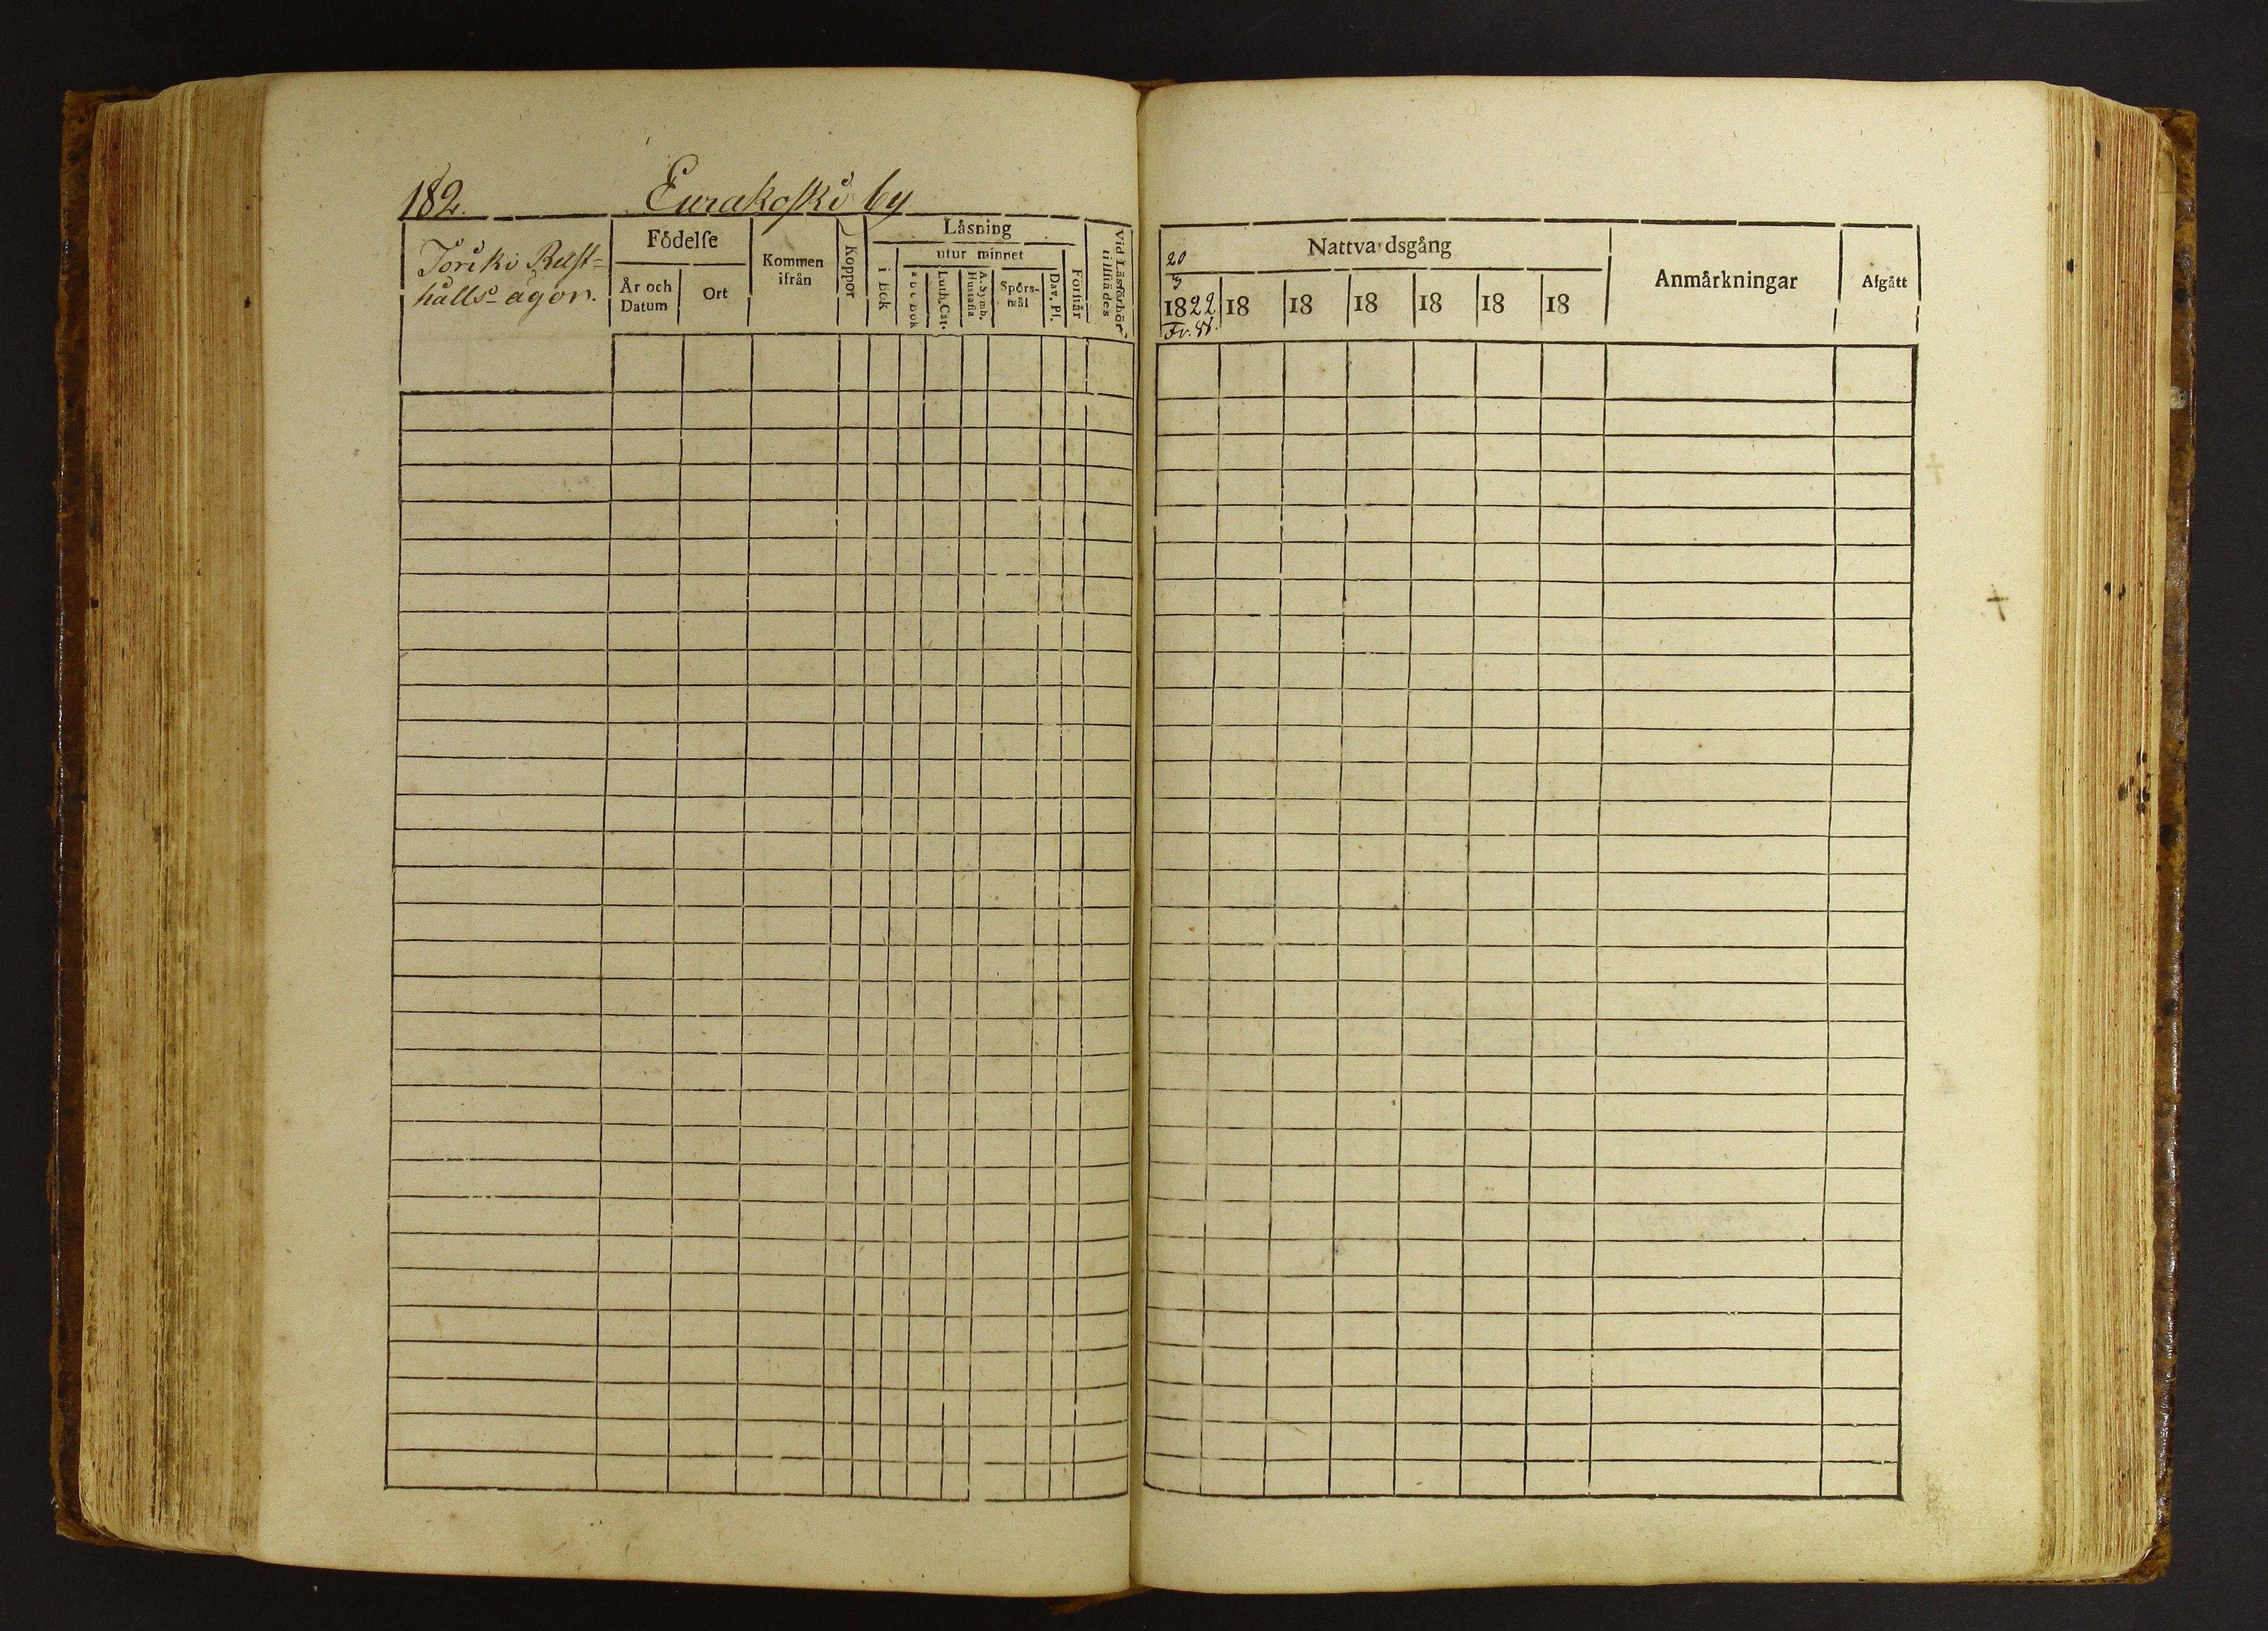 182. Eurakoski by
Joriki Rust=
hålls ägor.
Födelse
År och Datum
Ort
Kommen ifrån
Koppor
Läsning
i Bok
utur minnet
a b c Bok
Luth. Cat.
A. Symb. Hustafla
Spörs-mål
Dav. Ps.
Förstår
Vid Läsförhör tillstädes
Nattvardsgång
20
3
1822 18 18 18 18 18 18
Anmärkningar
Afgått